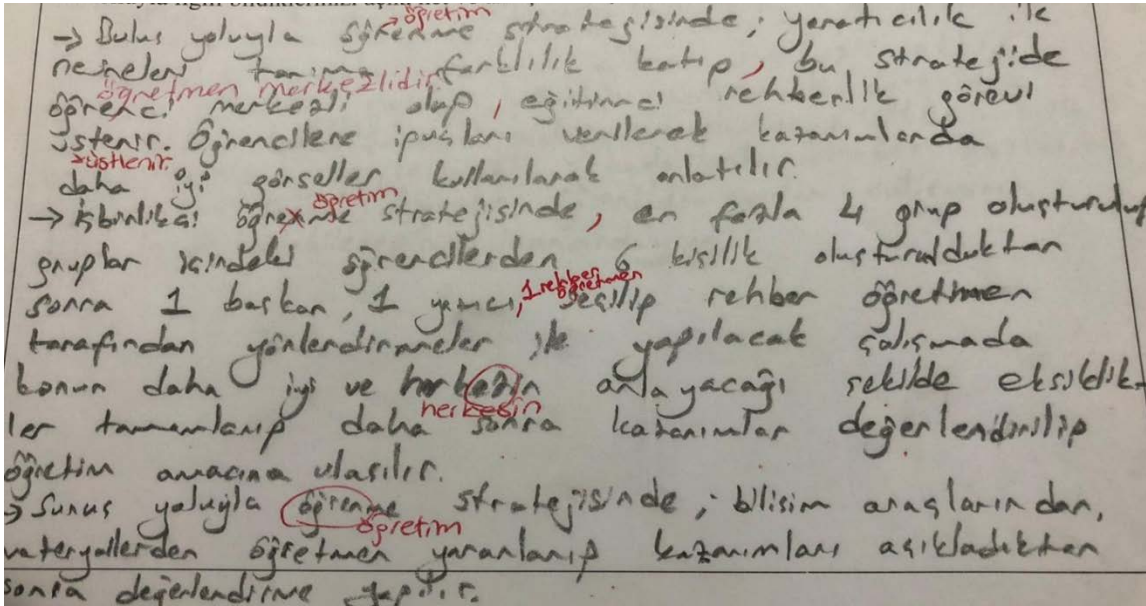 öğretim
→ Buluş yoluyla öğrenme stratejisinde; yaratıcılık ile
nesneleri tanıma farklılık katıp, bu stratejide
öğretmen merkezlidir.
öğrenci merkezli olup, eğitimci rehberlik görevi
üstenir. Öğrencilere ipuçları verilerek kazanımlarda
üstlenir.
daha iyi görseller kullanılarak anlatılır.
öğretim
→ işbirlikçi öğrenme stratejisinde, en fazla 4 grup oluşturulup
gruplar içindeki öğrencilerden 6 kişilik oluşturulduktan
1 rehber öğretmen
sonra 1 başkan, 1 yazıcı, seçilip rehber öğretmen
tarafından yönlendirmeler ile yapılacak çalışmada
konun daha iyi ve herkezin anlayacağı şekilde eksiklik
herkesin
ler tamamlanıp daha sonra kazanımlar değerlendirilip
öğretim amacına ulaşılır.
→ Sunuş yoluyla öğrenme stratejisinde; bilişim araçlarından,
öğretim
materyallerden öğretmen yararlanıp kazanımları açıkladıktan
sonra değerlendirme yapılır.